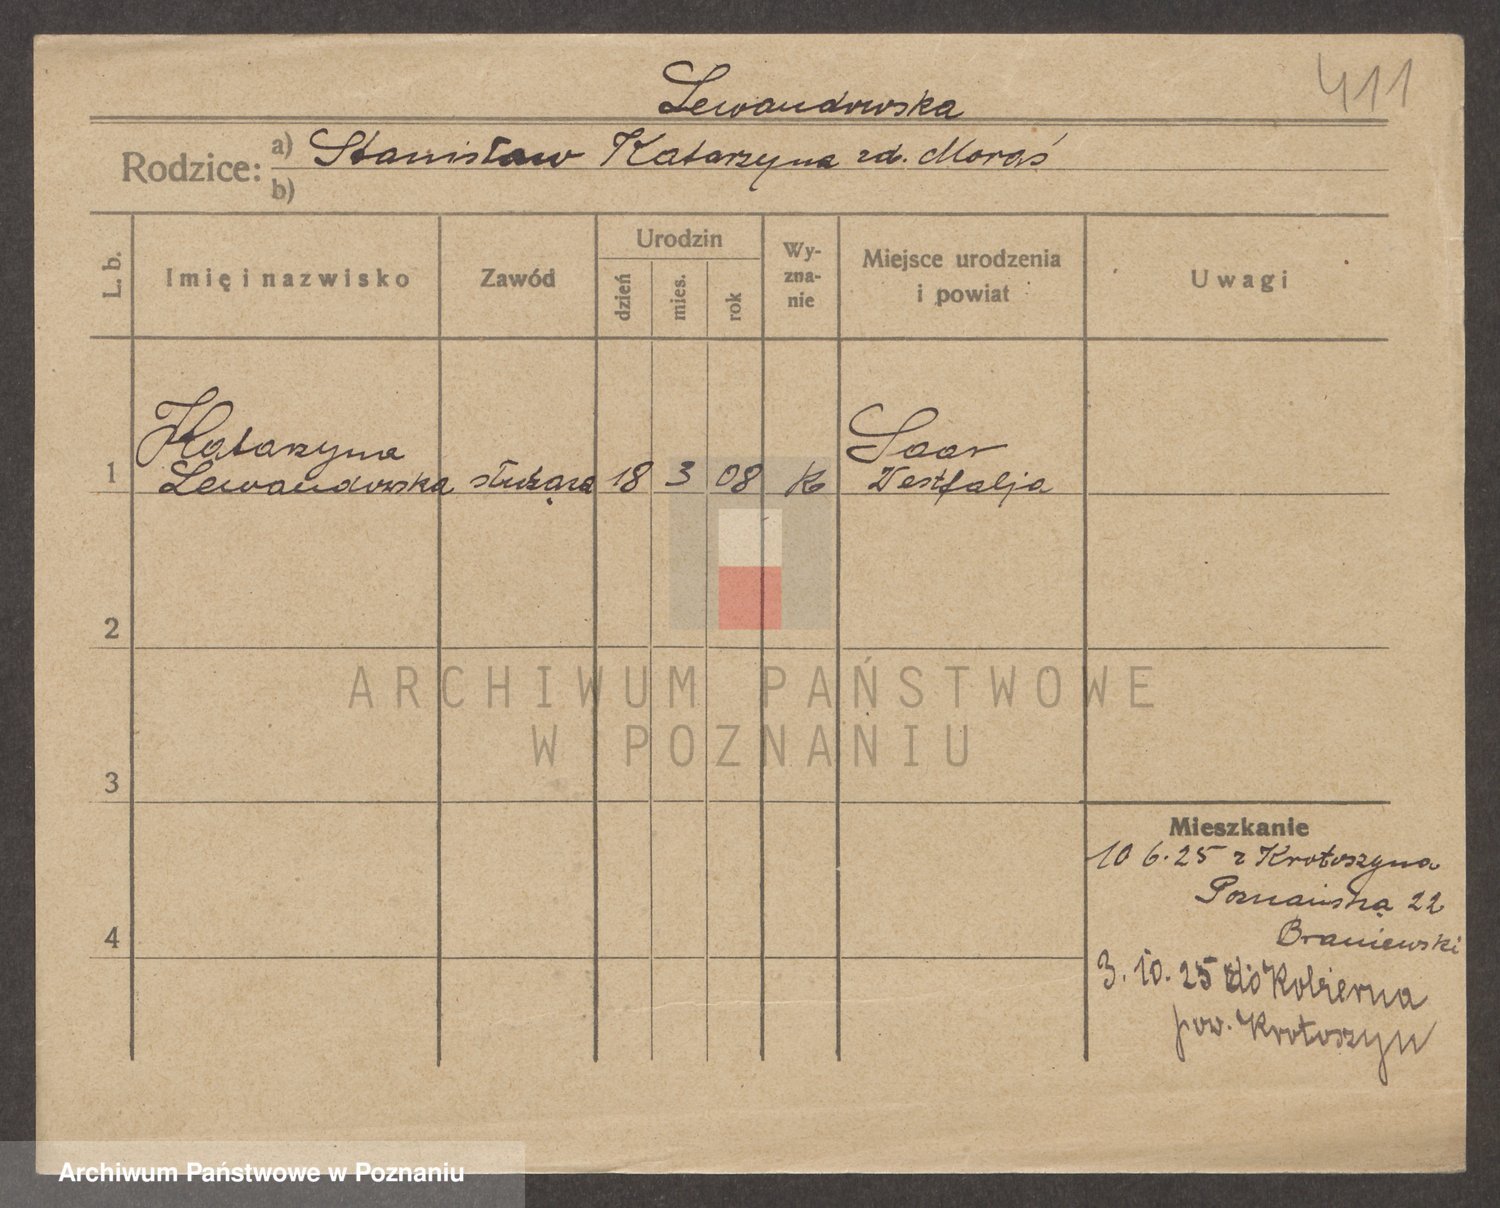 411
Lewandowska
Rodzice: a) Stanisław Katarzyna zd. Moraś
b)
L. b.
Imię i nazwisko
Zawód
Urodzin
dzień
mies.
rok
Wy-
zna-
nie
Miejsce urodzenia
i powiat
Uwagi
Katarzyna Saar
1 Lewandowska służąca 18 3 08 K Westfalja
2
ARCHIWUM PAŃSTWOWE
W POZNANIU
3
Mieszkanie
10 6.25 z Krotoszyna
Poznańska 22
Braniewski
4
3. 10. 25 do Kobierna
pow. Krotoszyn
Archiwum Państwowe w Poznaniu